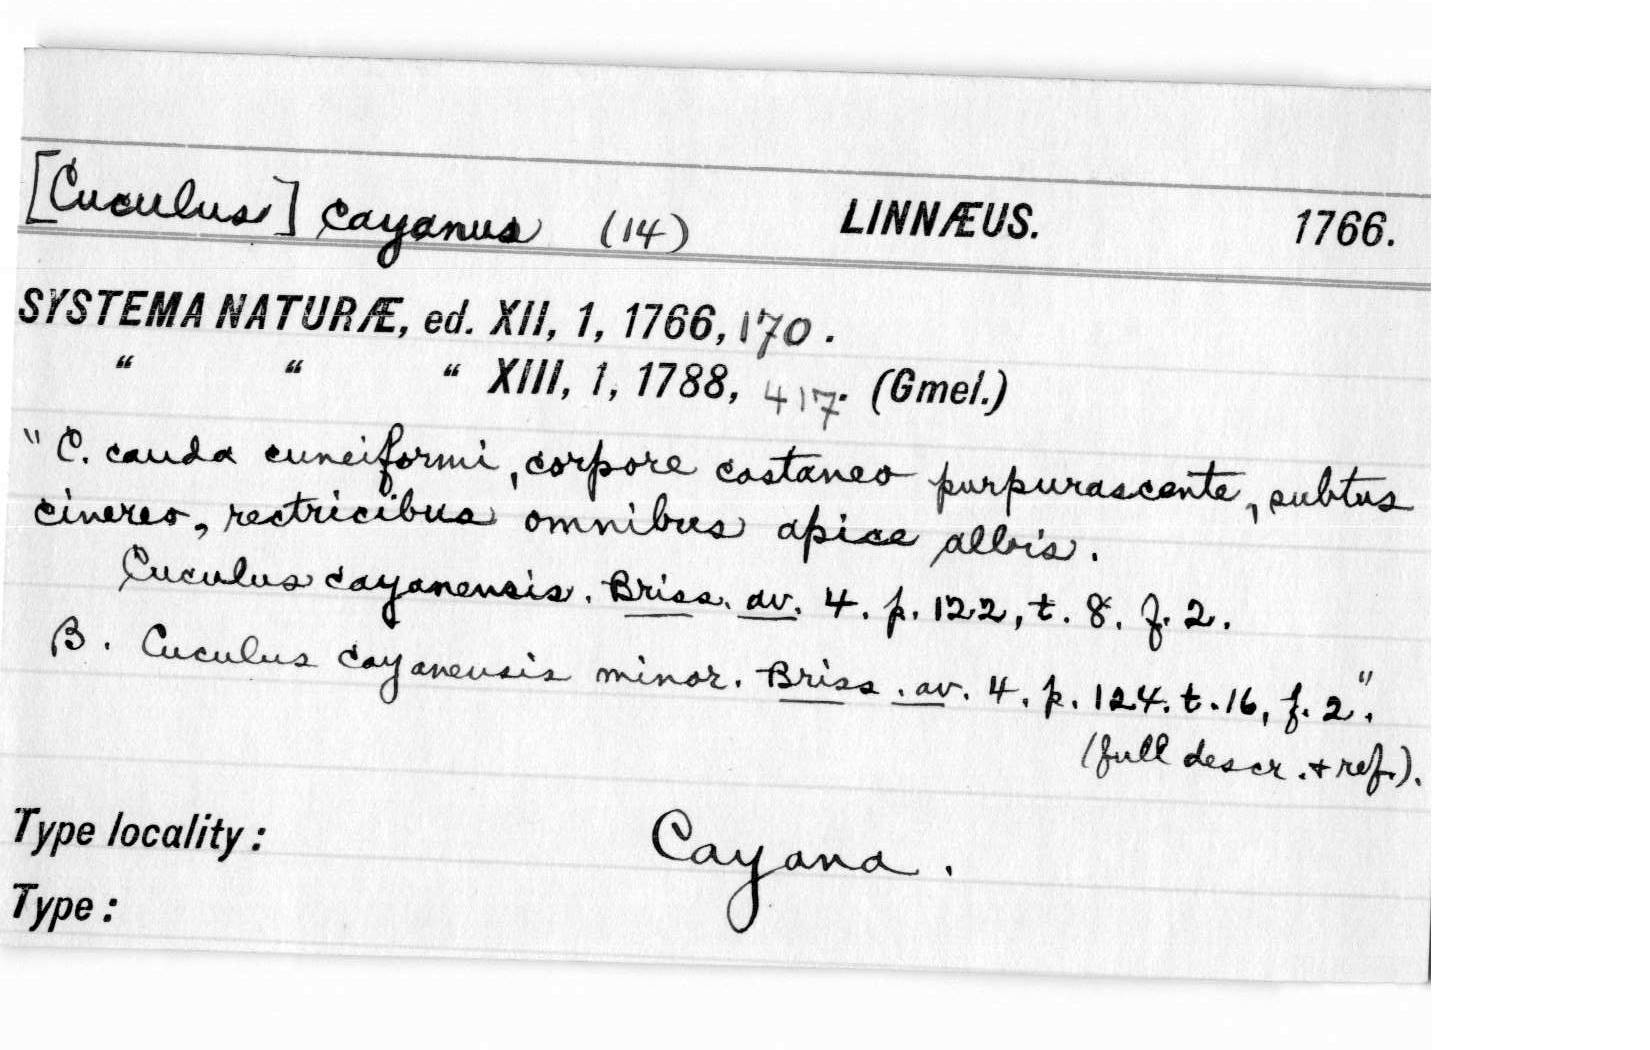 [Cuculus] cayanus (14) LINNÆUS. 1766.
SYSTEMA NATURÆ, ed. XII, 1, 1766, 170.
“ “ “ XIII, 1, 1788, 417. (Gmel.)
"C. cauda cuneiformi, corpore castaneo purpurascente, subtus
cinereo, rectricibus omnibus apice albis.
Cuculus cayanensis. Briss. av. 4. p. 122, t. 8. f. 2.
B. Cuculus cayanensis minor. Briss. av. 4. p. 124. t. 16, f. 2".
(full descr. + ref.).
Type locality: Cayana.
Type: